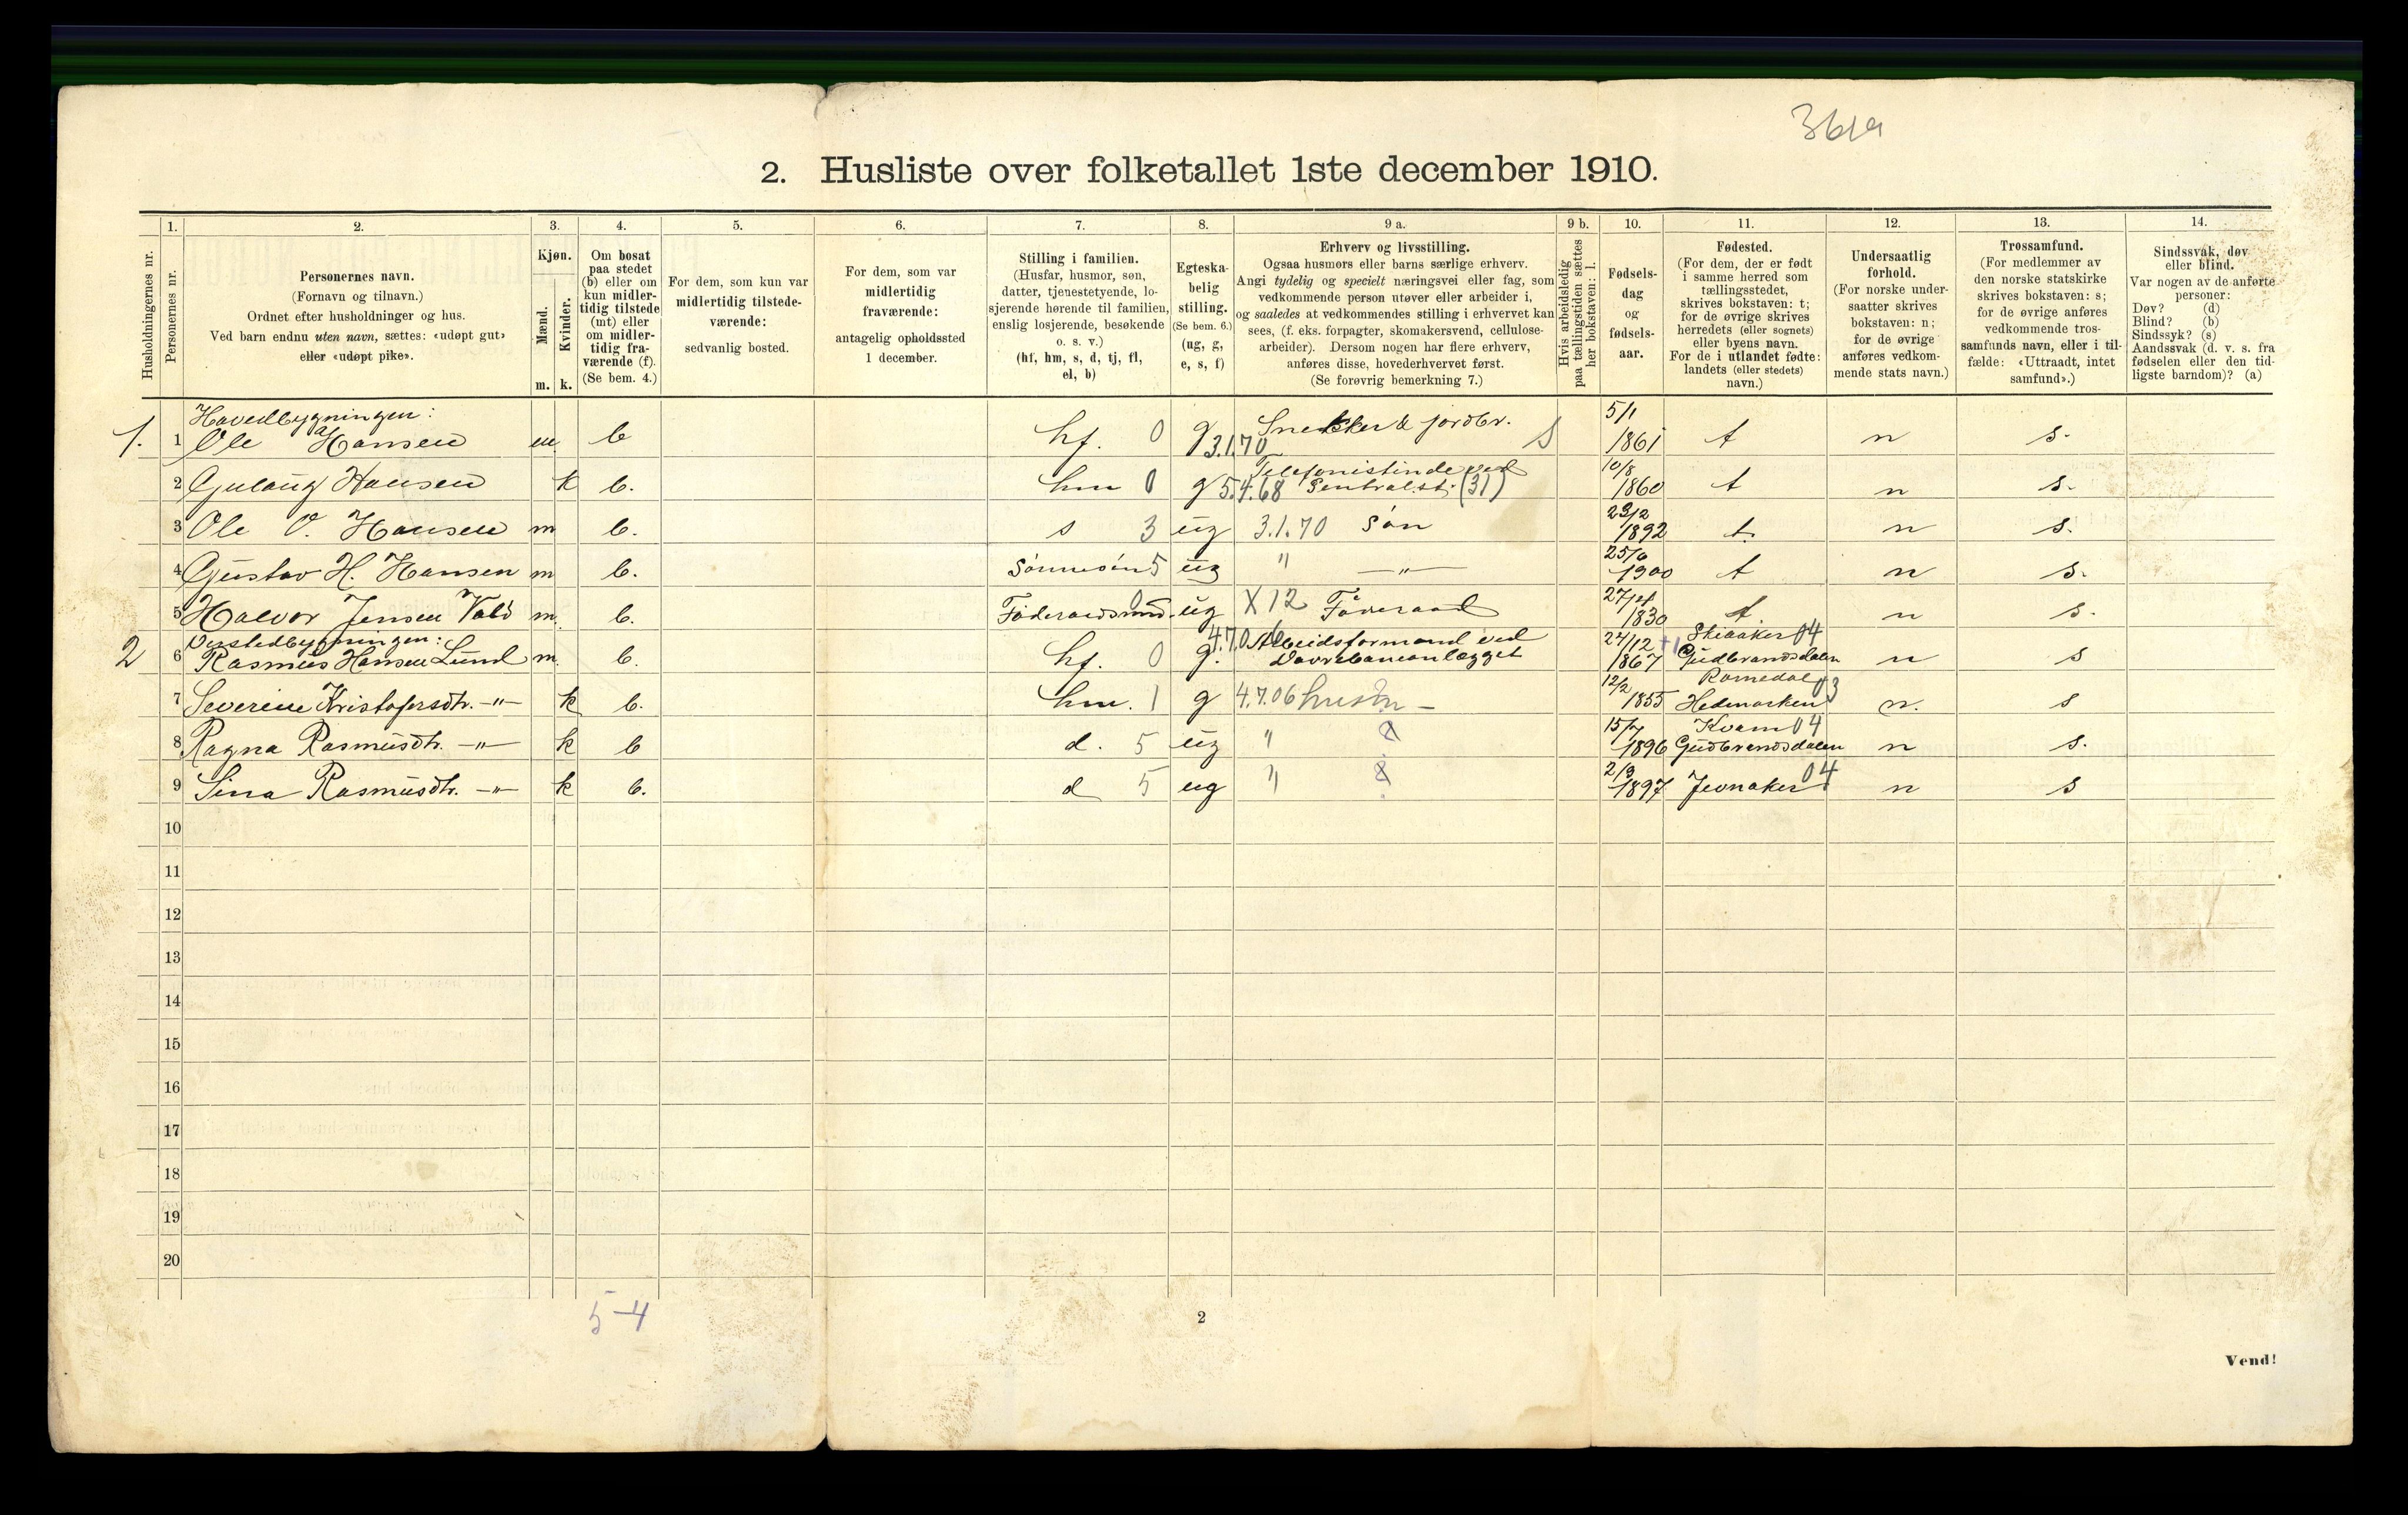 36/a
2. Husliste over folketallet 1ste december 1910.
Husholdningernes nr.
1.
Personernes nr.
2.
Personernes navn.
(Fornavn og tilnavn.)
Ordnet efter husholdninger og hus.
Ved barn endnu uten navn, sættes: «udøpt gut»
eller «udøpt pike».
3.
Kjøn.
Mænd.
Kvinder.
m. k.
4.
Om bosat
paa stedet
(b) eller om
kun midler-
tidig tilstede
(mt) eller
om midler-
tidig fra-
værende (f).
(Se bem. 4.)
5.
For dem, som kun var
midlertidig tilstede-
værende:
sedvanlig bosted.
6.
For dem, som var
midlertidig
fraværende:
antagelig opholdssted
1 december.
7.
Stilling i familien.
(Husfar, husmor, søn,
datter, tjenestetyende, lo-
sjerende hørende til familien,
enslig losjerende, besøkende
o. s. v.)
(hf, hm, s, d, tj, fl,
el, b)
8.
Egteska-
belig
stilling.
(Se bem. 6.)
(ug, g,
e, s, f)
9 a.
Erhverv og livsstilling.
Ogsaa husmors eller barns særlige erhverv.
Angi tydelig og specielt næringsvei eller fag, som
vedkommende person utøver eller arbeider i,
og saaledes at vedkommendes stilling i erhvervet kan
sees, (f. eks. forpagter, skomakersvend, cellulose-
arbeider). Dersom nogen har flere erhverv,
anføres disse, hovederhvervet først.
(Se forøvrig bemerkning 7.)
9 b.
Hvis arbeidsledig
paa tællingstiden sættes
her bokstaven: l.
10.
Fødsels-
dag
og
fødsels-
aar.
11.
Fødested.
(For dem, der er født
i samme herred som
tællingsstedet,
skrives bokstaven: t;
for de øvrige skrives
herredets (eller sognets)
eller byens navn.
For de i utlandet fødte:
landets (eller stedets)
navn.)
12.
Undersaatlig
forhold.
(For norske under-
saatter skrives
bokstaven: n;
for de øvrige
anføres vedkom-
mende stats navn.)
13.
Trossamfund.
(For medlemmer av
den norske statskirke
skrives bokstaven: s;
for de øvrige anføres
vedkommende tros-
samfunds navn, eller i til-
fælde: «Uttraadt, intet
samfund».)
14.
Sindssvak, døv
eller blind.
Var nogen av de anførte
personer:
Døv? (d)
Blind? (b)
Sindssyk? (s)
Aandssvak (d. v. s. fra
fødselen eller den tid-
ligste barndom)? (a)
Hovedbygningen:
1. 1 Ole Hansen m b hf. 0 g 3.1.70 Snekker & jordbr. S 5/1 1861 t n s.
2 Gulaug Hansen k b. hm 0 g 5.4.68 Telefonistinde ved Sentralst. (31) 10/8 1860 t n s.
3 Ole O. Hansen m b. s 3 ug 3.1.70 Søn 23/2 1892 t. n s.
4 Gustav H. Hansen m b. Sønnesøn 5 ug " —"— 25/6 1900 t n s.
5 Halvor Jensen m. b. Føderaadsmd. 0 ug X12 Føderaad 1830 t n s.
2 6 Rasmus Hansen Lund m. b. hf. 0 g. 4.7.06 Arbeidsformand ved Dovrebaneanlægget 24/12 1867 Skiaaker 04 Gudbrandsdalen n s
7 Severine Kristofersdtr. —"— k b. hm. 1 g 4.7.06 hustr — 12/2 1855 Romedal 03 Hedemarken n. s
8 Ragna Rasmusdtr. —"— k b d. 5 ug " 15/7 1896 Kvam 04 Gudbrandsdalen n s.
9 Sina Rasmusdtr. —"— k b. d 5 ug " 2/9 1897 Jevnaker 04 n s
10
11
12
13
14
15
16
17
18
19
20
5-4
2
Vend!